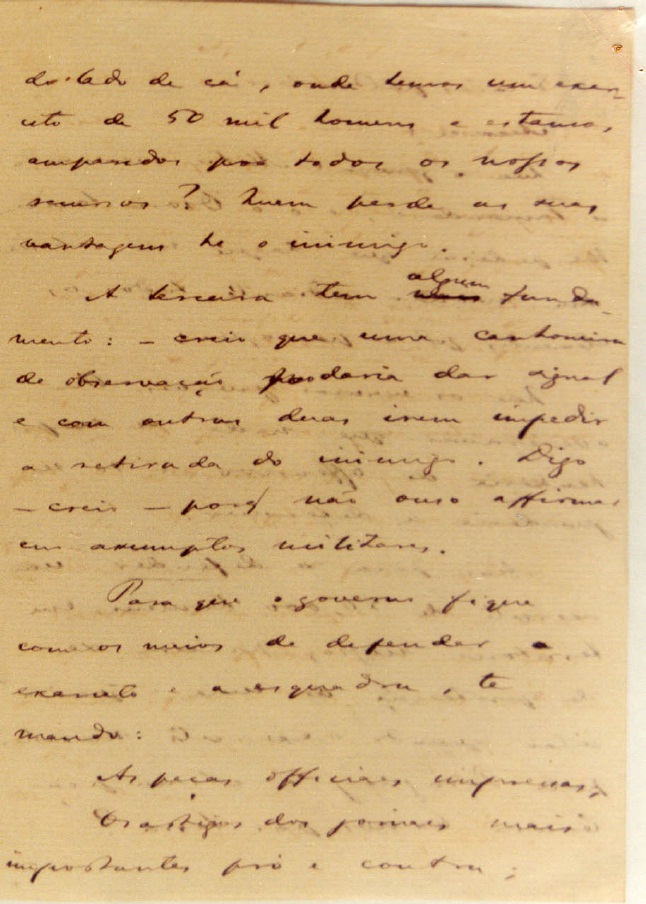 do lado de cá, onde temos um exer-
cito de 50 mil homens e estamos
amparados por todos os nossos
recursos? Quem perde as suas
vantagens he o inimigo.
A terceira tem algum funda-
mento: – creio que uma canhoneira
de observação poderia dar signal
e com outras duas irem impedir
a retirada do inimigo. Digo
– creio – porq não ouso affirmar
em assumptos militares.
Para que o governo fique
com os meios de defender o
exercito e a esquadra, te
mando:
As peças officiaes impressas,
Os artigos dos jornaes mais
importantes pró e contra;